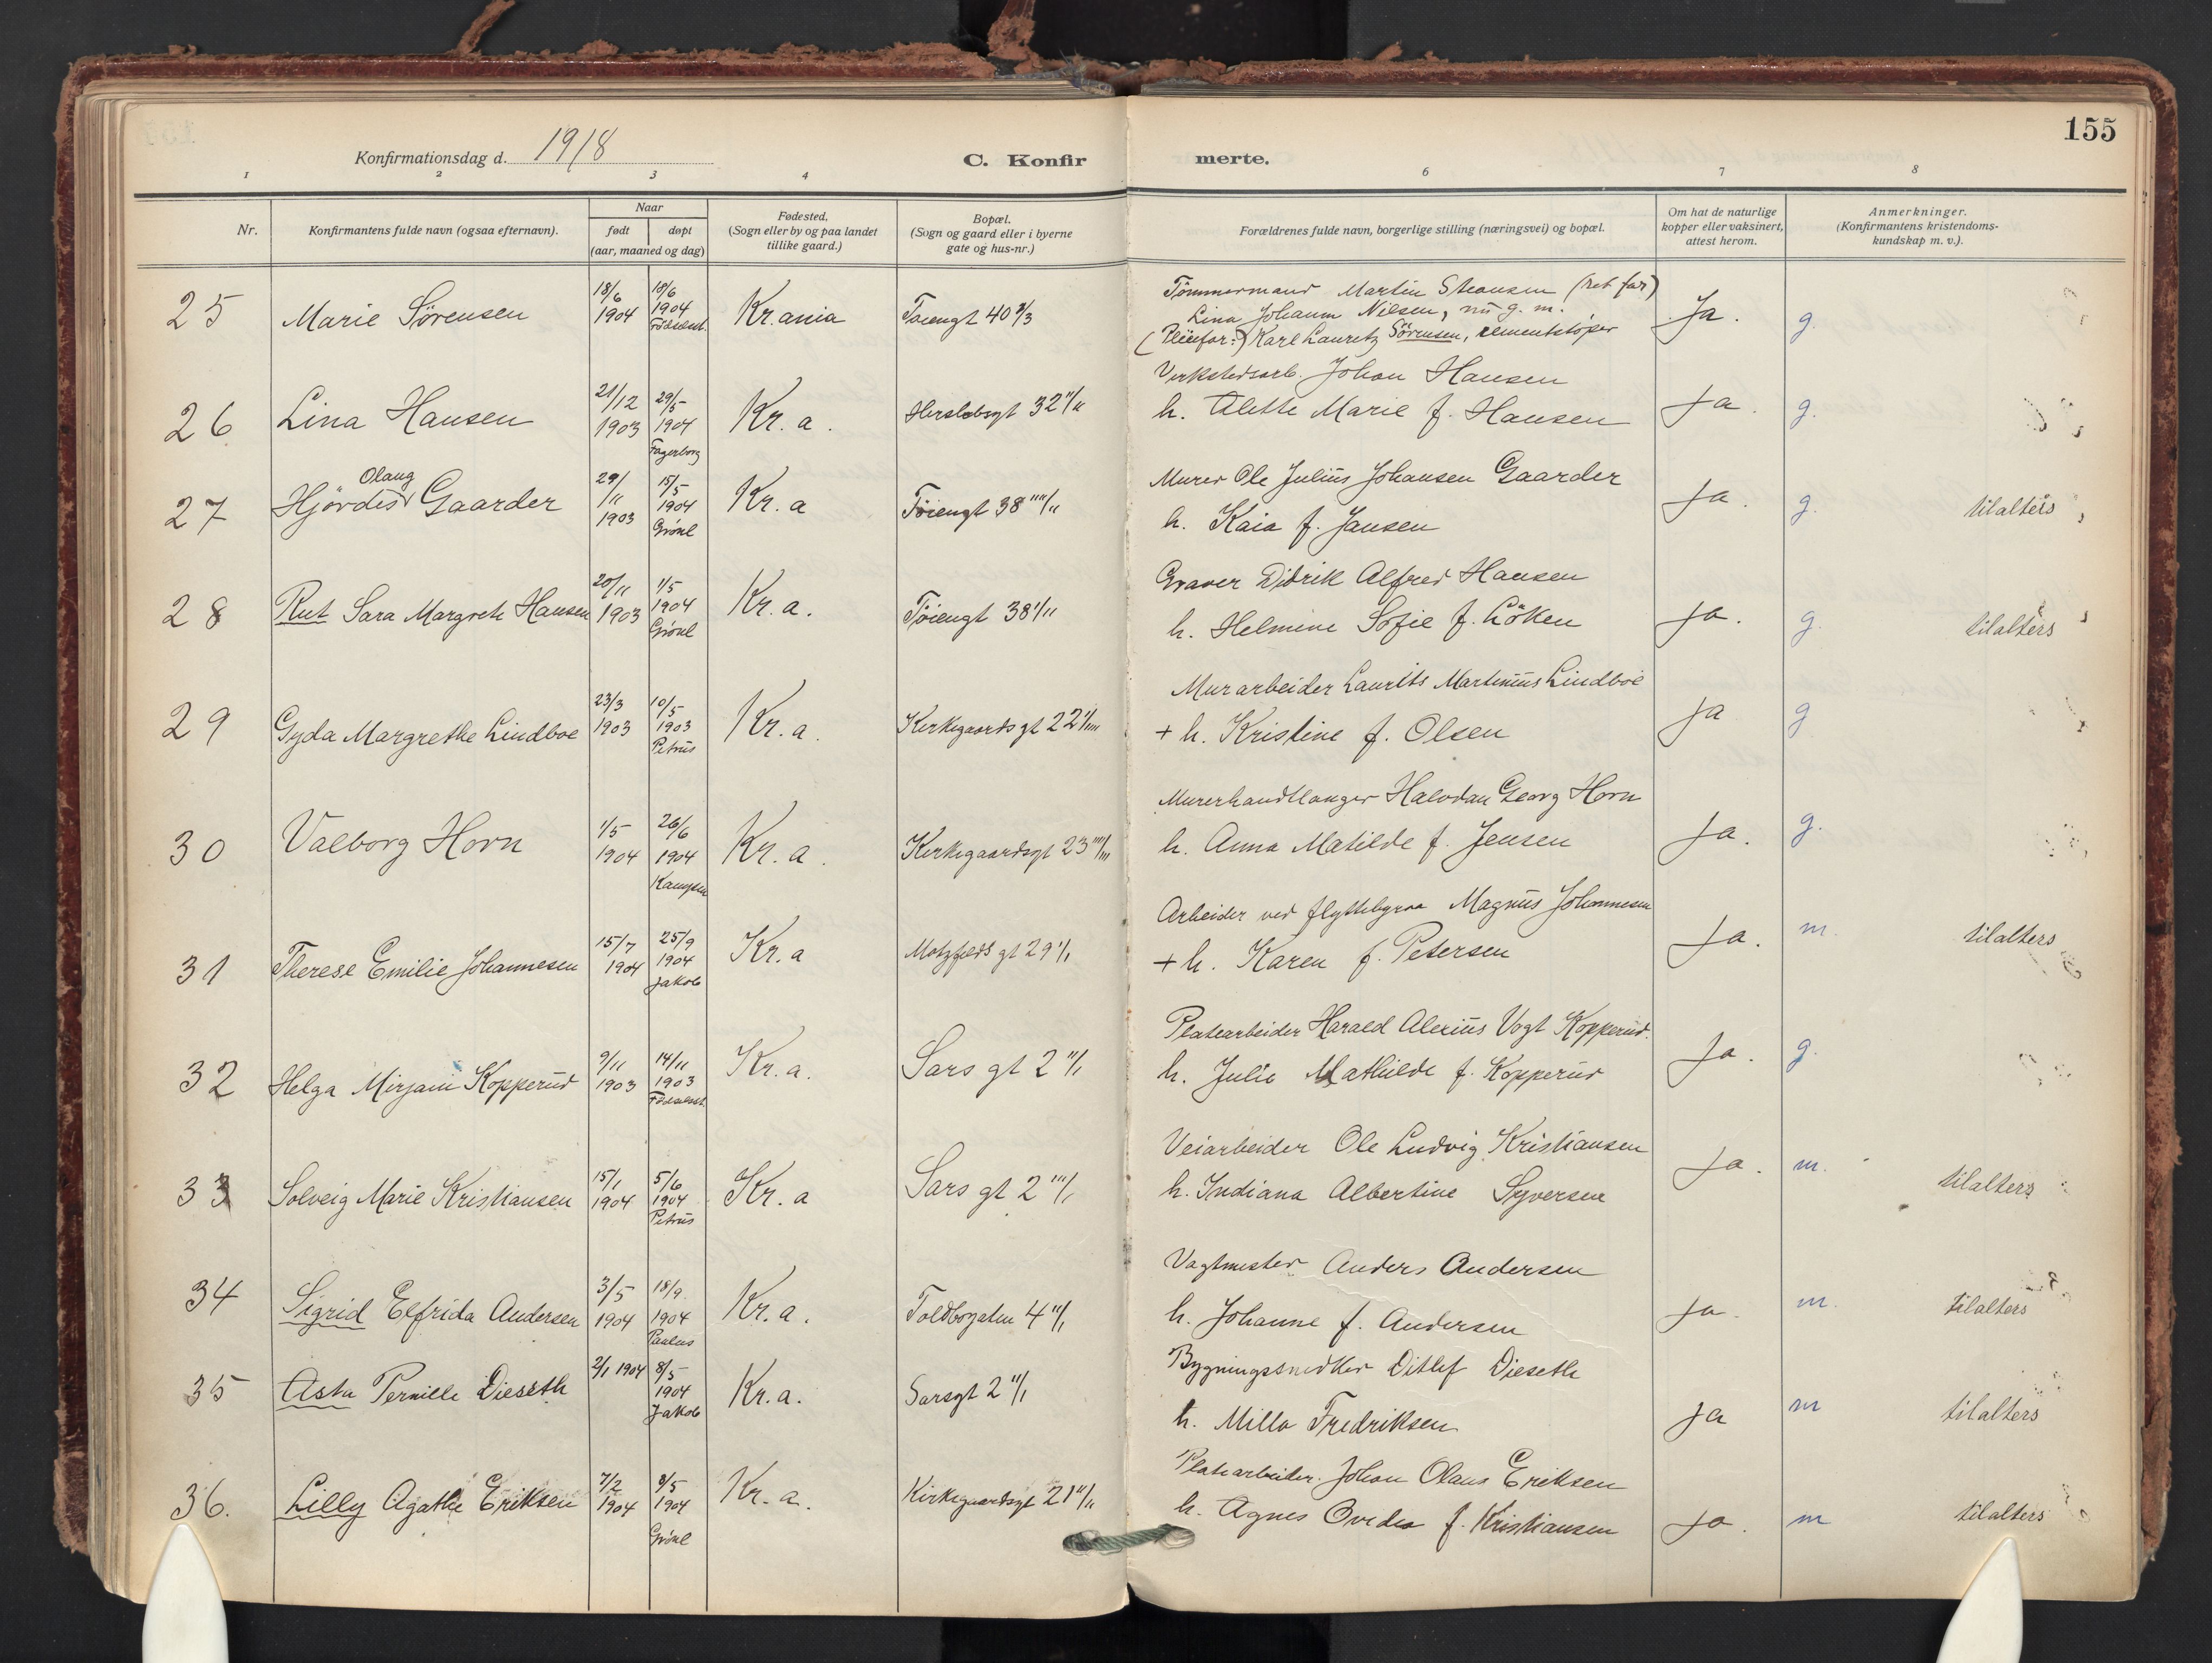 155
Konfirmationsdag d. 1918
C. Konfirmerte.
1 2 3 4 6 7 8
Nr.
Konfirmantens fulde navn (ogsaa efternavn).
Naar
født døpt
(aar, maaned og dag)
Fødested.
(Sogn eller by og paa landet
tillike gaard.)
Bopæl.
(Sogn og gaard eller i byerne
gate og hus-nr.)
Forældrenes fulde navn, borgerlige stilling (næringsvei) og bopæl.
Om hat de naturlige
kopper eller vaksinert,
attest herom.
Anmerkninger.
(Konfirmantens kristendoms-
kundskap m. v.).
25 Marie Sørensen
18/6 1904
10/6 1904 Fødselsst.
Kr.ania
Tøiengt 40
Tømmermand Martin (ret far)
Lina Johanne Nilsen, nu g. m.
(Pleiefar:) Karl Lauretz Sörensen, cementstøper
Ja. g.
26 Lina Hansen
21/12 1903
29/5 1904 Fagerborg
Kr. a.
Herslebsgt 32 II/II
Verkstedsarb. Johan Hansen
h. Alette Marie f. Hansen
Ja. g.
27 Hjördis Olaug Gaarder
29/11 1903
15/5 1904 Grønl
Kr. a
Tøiengt 38 IIII/II
Murer Ole Julius Johansen Gaarder
h. Kaia f. Jansen
Ja. g. tilalters
28 Rut Sara Margrete Hansen
20/11 1903
1/5 1904 Grønl
Kr. a.
Tøiengt 38 I/II
Graver Didrik Alfred Hansen
h. Helmine Sofie f. Löken
Ja. g. tilalters
29 Gyda Margrethe Lindboe
23/3 1903
10/5 1903 Petrus
Kr. a.
Kirkegaardsgt 22 I/IIII
Murarbeider Laurits Martinius Lindboe
+ h. Kristine f. Olsen
Ja g
30 Valborg Horn
1/5 1904
26/6 1904 Kampen
Kr. a.
Kirkegaardsgt 23 IIII/III
Murerhandtlanger Halvdan Georg Horn
h. Anna Matilde f. Jensen
Ja. g.
31 Therese Emilie Johannesen
15/7 1904
25/9 1904 Jakob
Kr. a
Motzfeldsgt 29 I/I
Arbeider ved flyttebyraa Magnus Johannesen
+ h. Karen f. Petersen
Ja. m. tilalters
32 Helga Mirjam Kopperud
9/11 1903
14/11 1903 Fødselsst.
Kr. a.
Sars gt 2 II/I
Platearbeider Harald Alexius Vogt Kopperud.
h. Julie Mathilde f. Kopperud
Ja. g.
33 Solveig Marie Kristiansen
15/1 1904
5/6 1904 Petrus
Kr. a
Sars gt 2 III/I
Veiarbeider Ole Ludvig Kristiansen
h. Indiana Albertine Syversen
Ja. m. tilalters
34 Sigrid Elfrida Andersen
3/5 1904
18/9 1904 Paulus
Kr. a.
Toldbogaten 4 II/I
Vagtmester Anders Andersen
h. Johanne f. Andersen
Ja. m. tilalters
35 Asta Pernille Dieseth
2/1 1904
8/5 1904 Jakob
Kr. a.
Sarsgt 2 II/I
Bygningssnedker Ditlef Dieseth
h. Milla Fredriksen
Ja m tilalters
36. Lilly Agathe Eriksen
7/2 1904
8/5 1904 Grønl
Kr. a.
Kirkegaardsgt 21 II/II
Platearbeider. Johan Olaus Eriksen
h. Agnes Ovedia f. Kristiansen
Ja. m tilalters